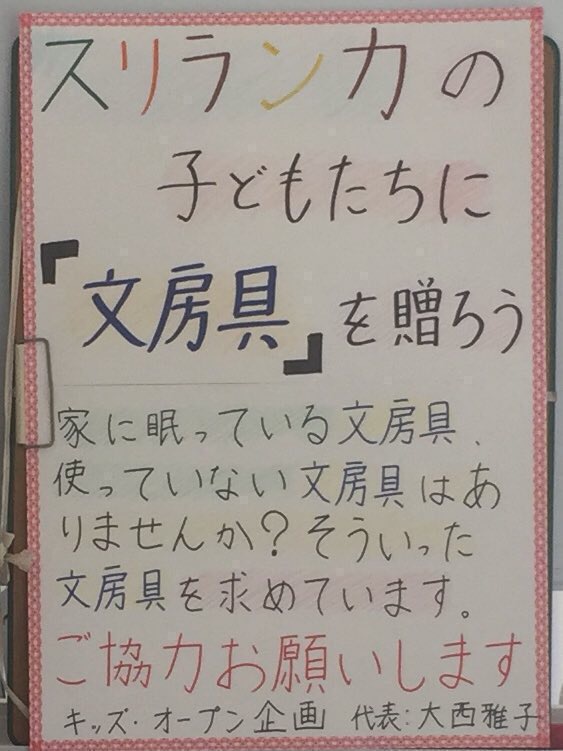 スリランカの
子どもたちに
『文房具』を贈ろう
家に眠っている文房具、
使っていない文房具はあ
りませんか?そういった
文房具を求めています。
ご協力お願いします
キッズ・オープン企画 代表:大西雅子